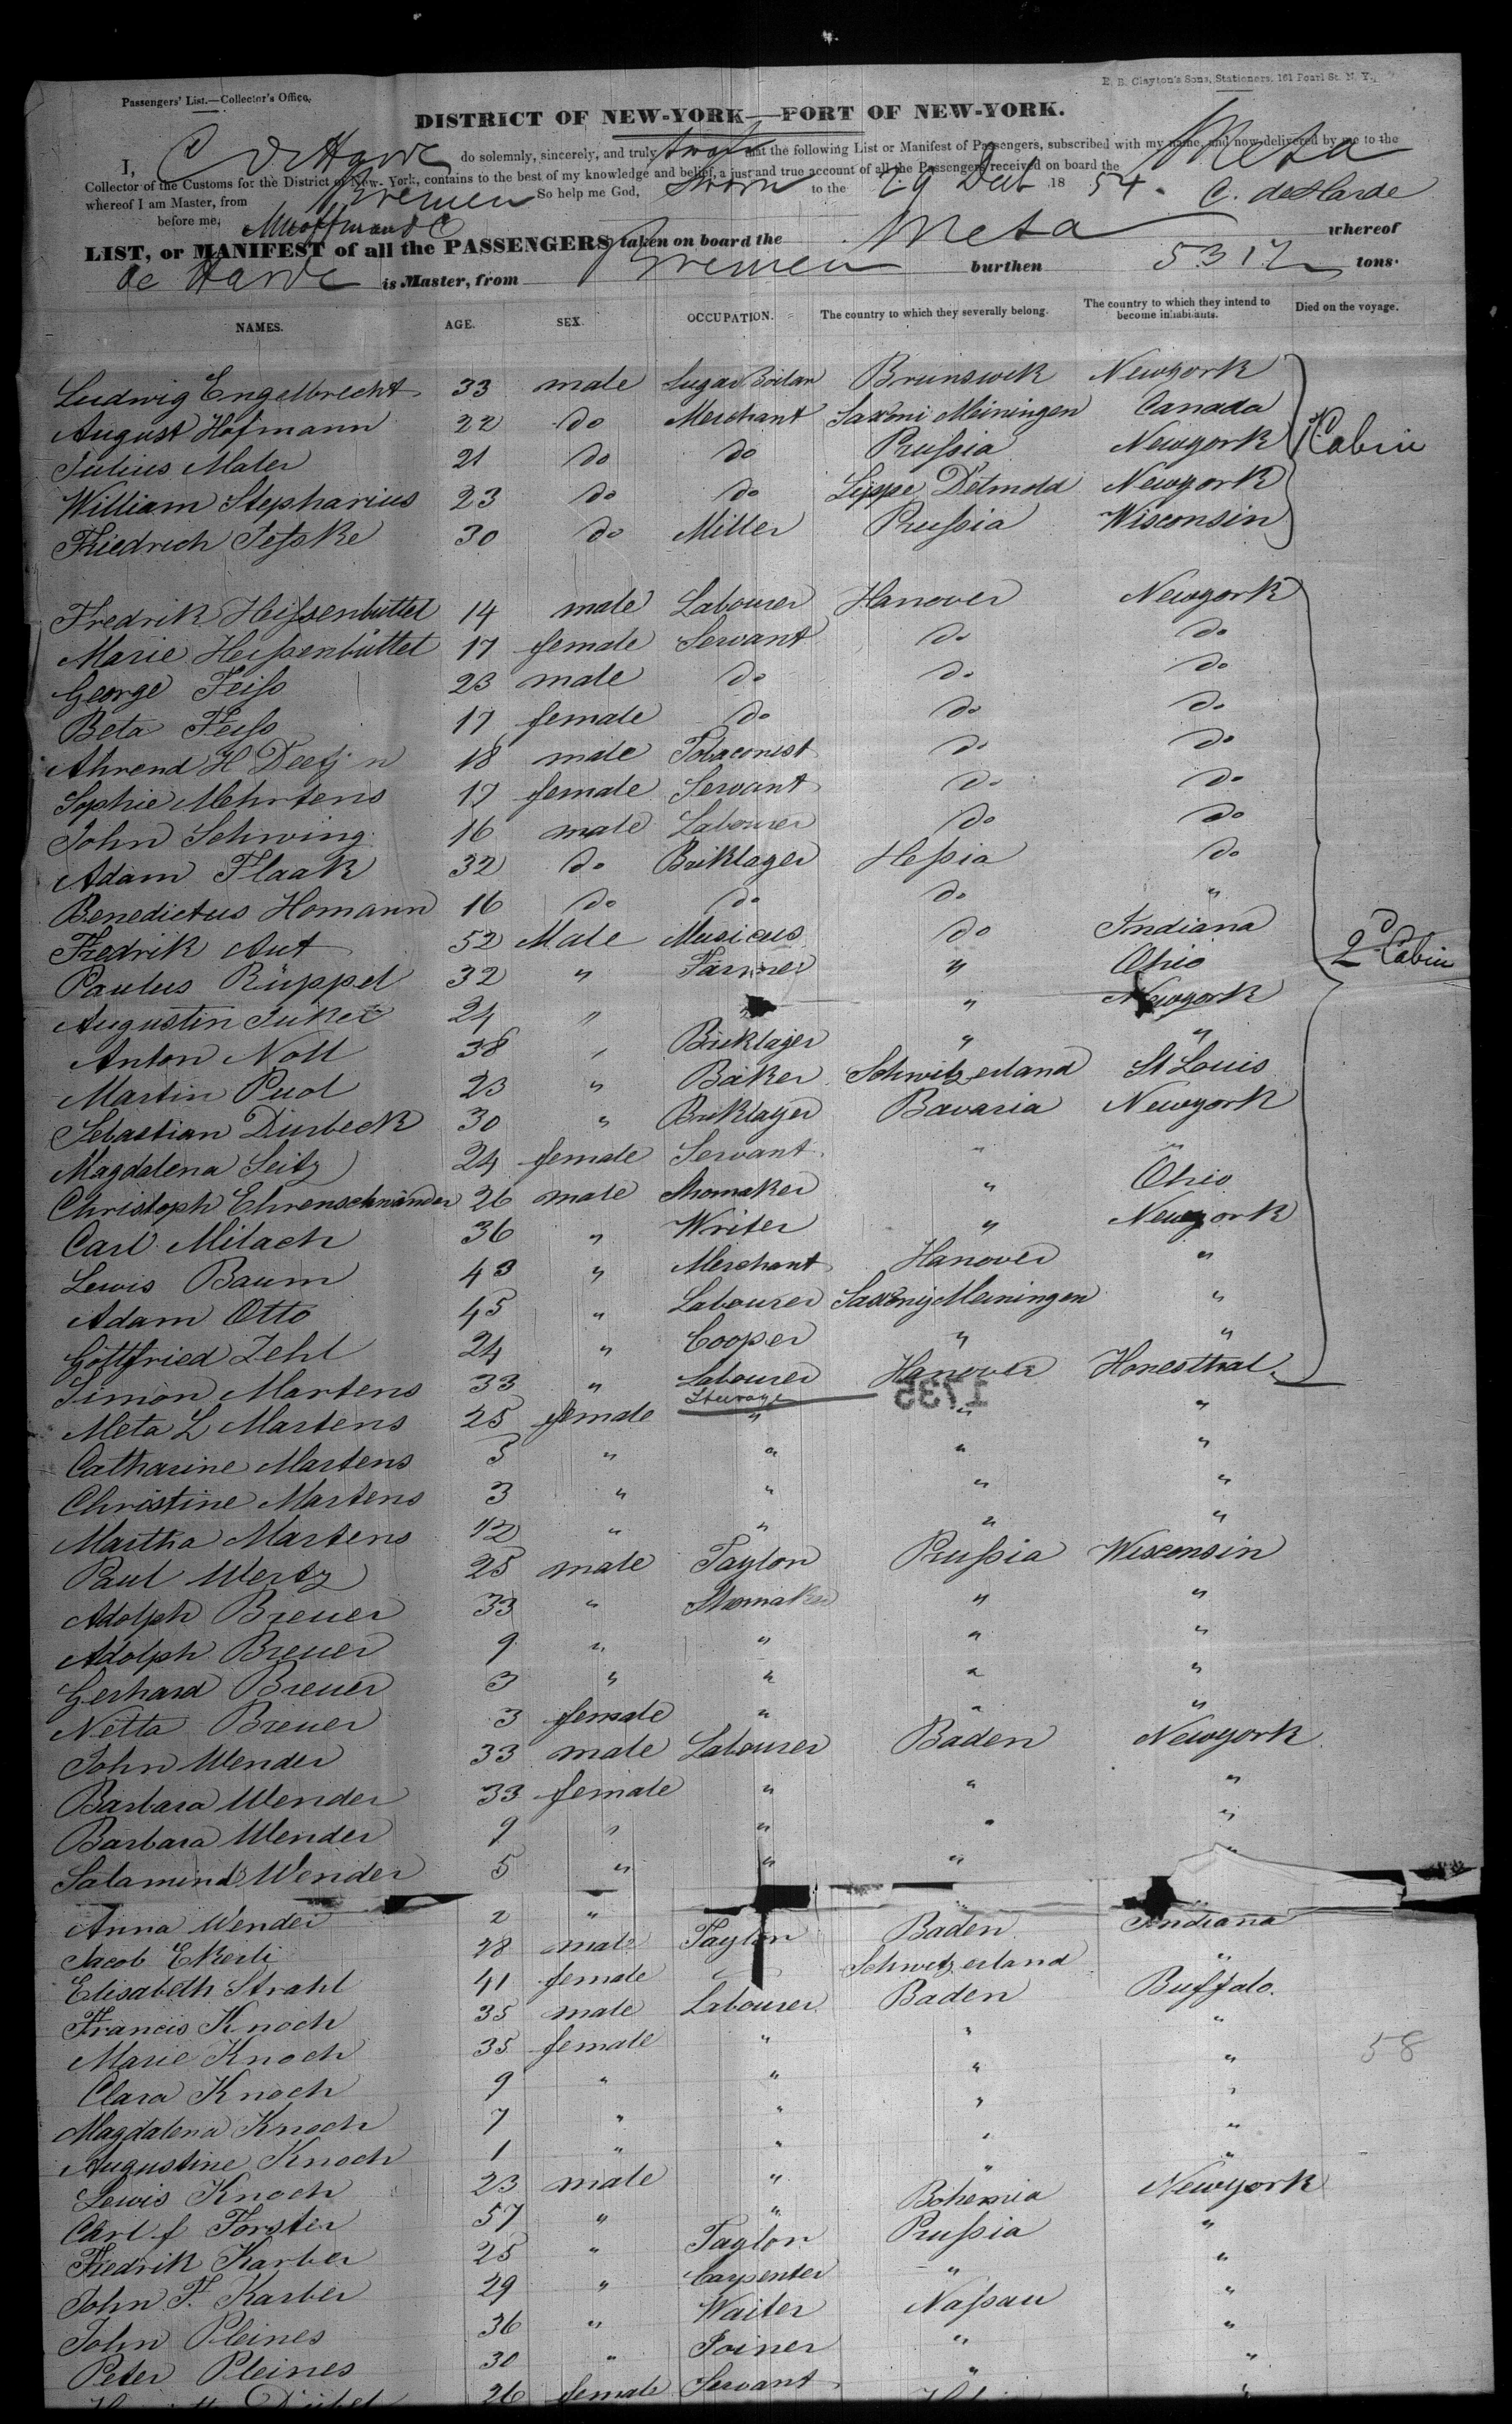 E. B. Clayton's Sons, Stationers, 161 Pearl St. N. Y.
Passengers' List.—Collector's Office.
DISTRICT OF NEW-YORK—PORT OF NEW-YORK.
I, C de Harde do solemnly, sincerely, and truly swear that the following List or Manifest of Passengers, subscribed with my name, and now delivered by me to the
Collector of the Customs for the District of New-York, contains to the best of my knowledge and belief, a just and true account of all the Passengers received on board the Meta
whereof I am Master, from Bremen So help me God, C. de Harde
Sworn to the 29 18 54.
before me,
LIST, or MANIFEST of all the PASSENGERS taken on board the Meta whereof
de Harde is Master, from Bremen burthen tons.
NAMES. AGE. SEX. OCCUPATION. The country to which they severally belong. The country to which they intend to become inhabitants. Died on the voyage.
Ludwig Engelbrecht 33 male Sugar Boilar Brunswek Newyork
August Hofmann 22 do Merchant Saxoni Meiningen Canada
Julius Maler 21 do do Prussia Newyork
Cabin
William Stepharius 23 do do Lippe Detmold Newyork
Friedrich Teske 30 do Miller Prussia Wisconsin
Fredrik Heissenbuttel 14 male Labourer Hanover Newyork
Marie Heissenbüttel 17 female Servant do do
George Feiss 23 male do do do
Beta Feiss 17 female do do do
Ahrend H 18 male Tobaconist do do
Sophie Mehrtens 17 female Servant do do
John Schwing 16 male Labourer do do
Adam Flaak 32 do Briklager Hessia do
Benedictus Homann 16 do do do "
Fredrik Aut 52 Male Musicus do Indiana
2d Cabin
Paulus Rüppel 32 " Farmer " Ohio
Augustin Juker 24 " " " Newyork
Anton Noll 38 " Bricklajer " "
Martin Puol 23 " Baker Schwitzerland St Louis
Sebastian Dürbeck 30 " Bricklayer Bavaria Newyork
Magdalena Seitz 24 female Servant " "
Christoph Ehrenschwänder 26 male Shomaker " Ohio
Carl Milach 36 " Writer " Newyork
Lewis Baum 43 " Merchant Hanover "
Adam Otto 45 " Labourer Saxony Meiningen "
Gottfried Zehl 24 " Cooper " "
Simon Martens 33 " Labourer Hanover Honesthal
Steerage
1735
Meta L Martens 25 female " " "
Catharine Martens 5 " " " "
Christine Martens 3 " " " "
Martha Martens 1/2 " " " "
Paul Wertz 25 male Taylor Prussia Wisconsin
Adolph Breuer 33 " Shomaker " "
Adolph Breuer 9 " " " "
Gerhard Breuer 3 " " " "
Netta Breuer 3 female " " "
John Wender 33 male Labourer Baden Newyork
Barbara Wender 33 female " " "
Barbara Wender 9 " " " "
Salamind Wender 5 " " " "
Anna Wender 2 "
Jacob Ekerli 28 male Taylor Baden Indiana
Elisabeth Strahl 41 female " Schwitzerland "
Francis Knoch 35 male Labourer Baden Buffalo.
Marie Knoch 35 female " " "
58
Clara Knoch 9 " " " "
Magdalena Knoch 7 " " " "
Augustine Knoch 1 " " " "
Lewis Knoch 23 male " " "
Carl f Forster 57 " " Bohemia Newyork
Fredrik Karber 25 " Taylor Prussia "
John F. Karber 29 " Carpenter " "
John Pleines 36 " Waiter Nassau "
Peter Pleines 30 " Joiner " "
26 female Servant " "